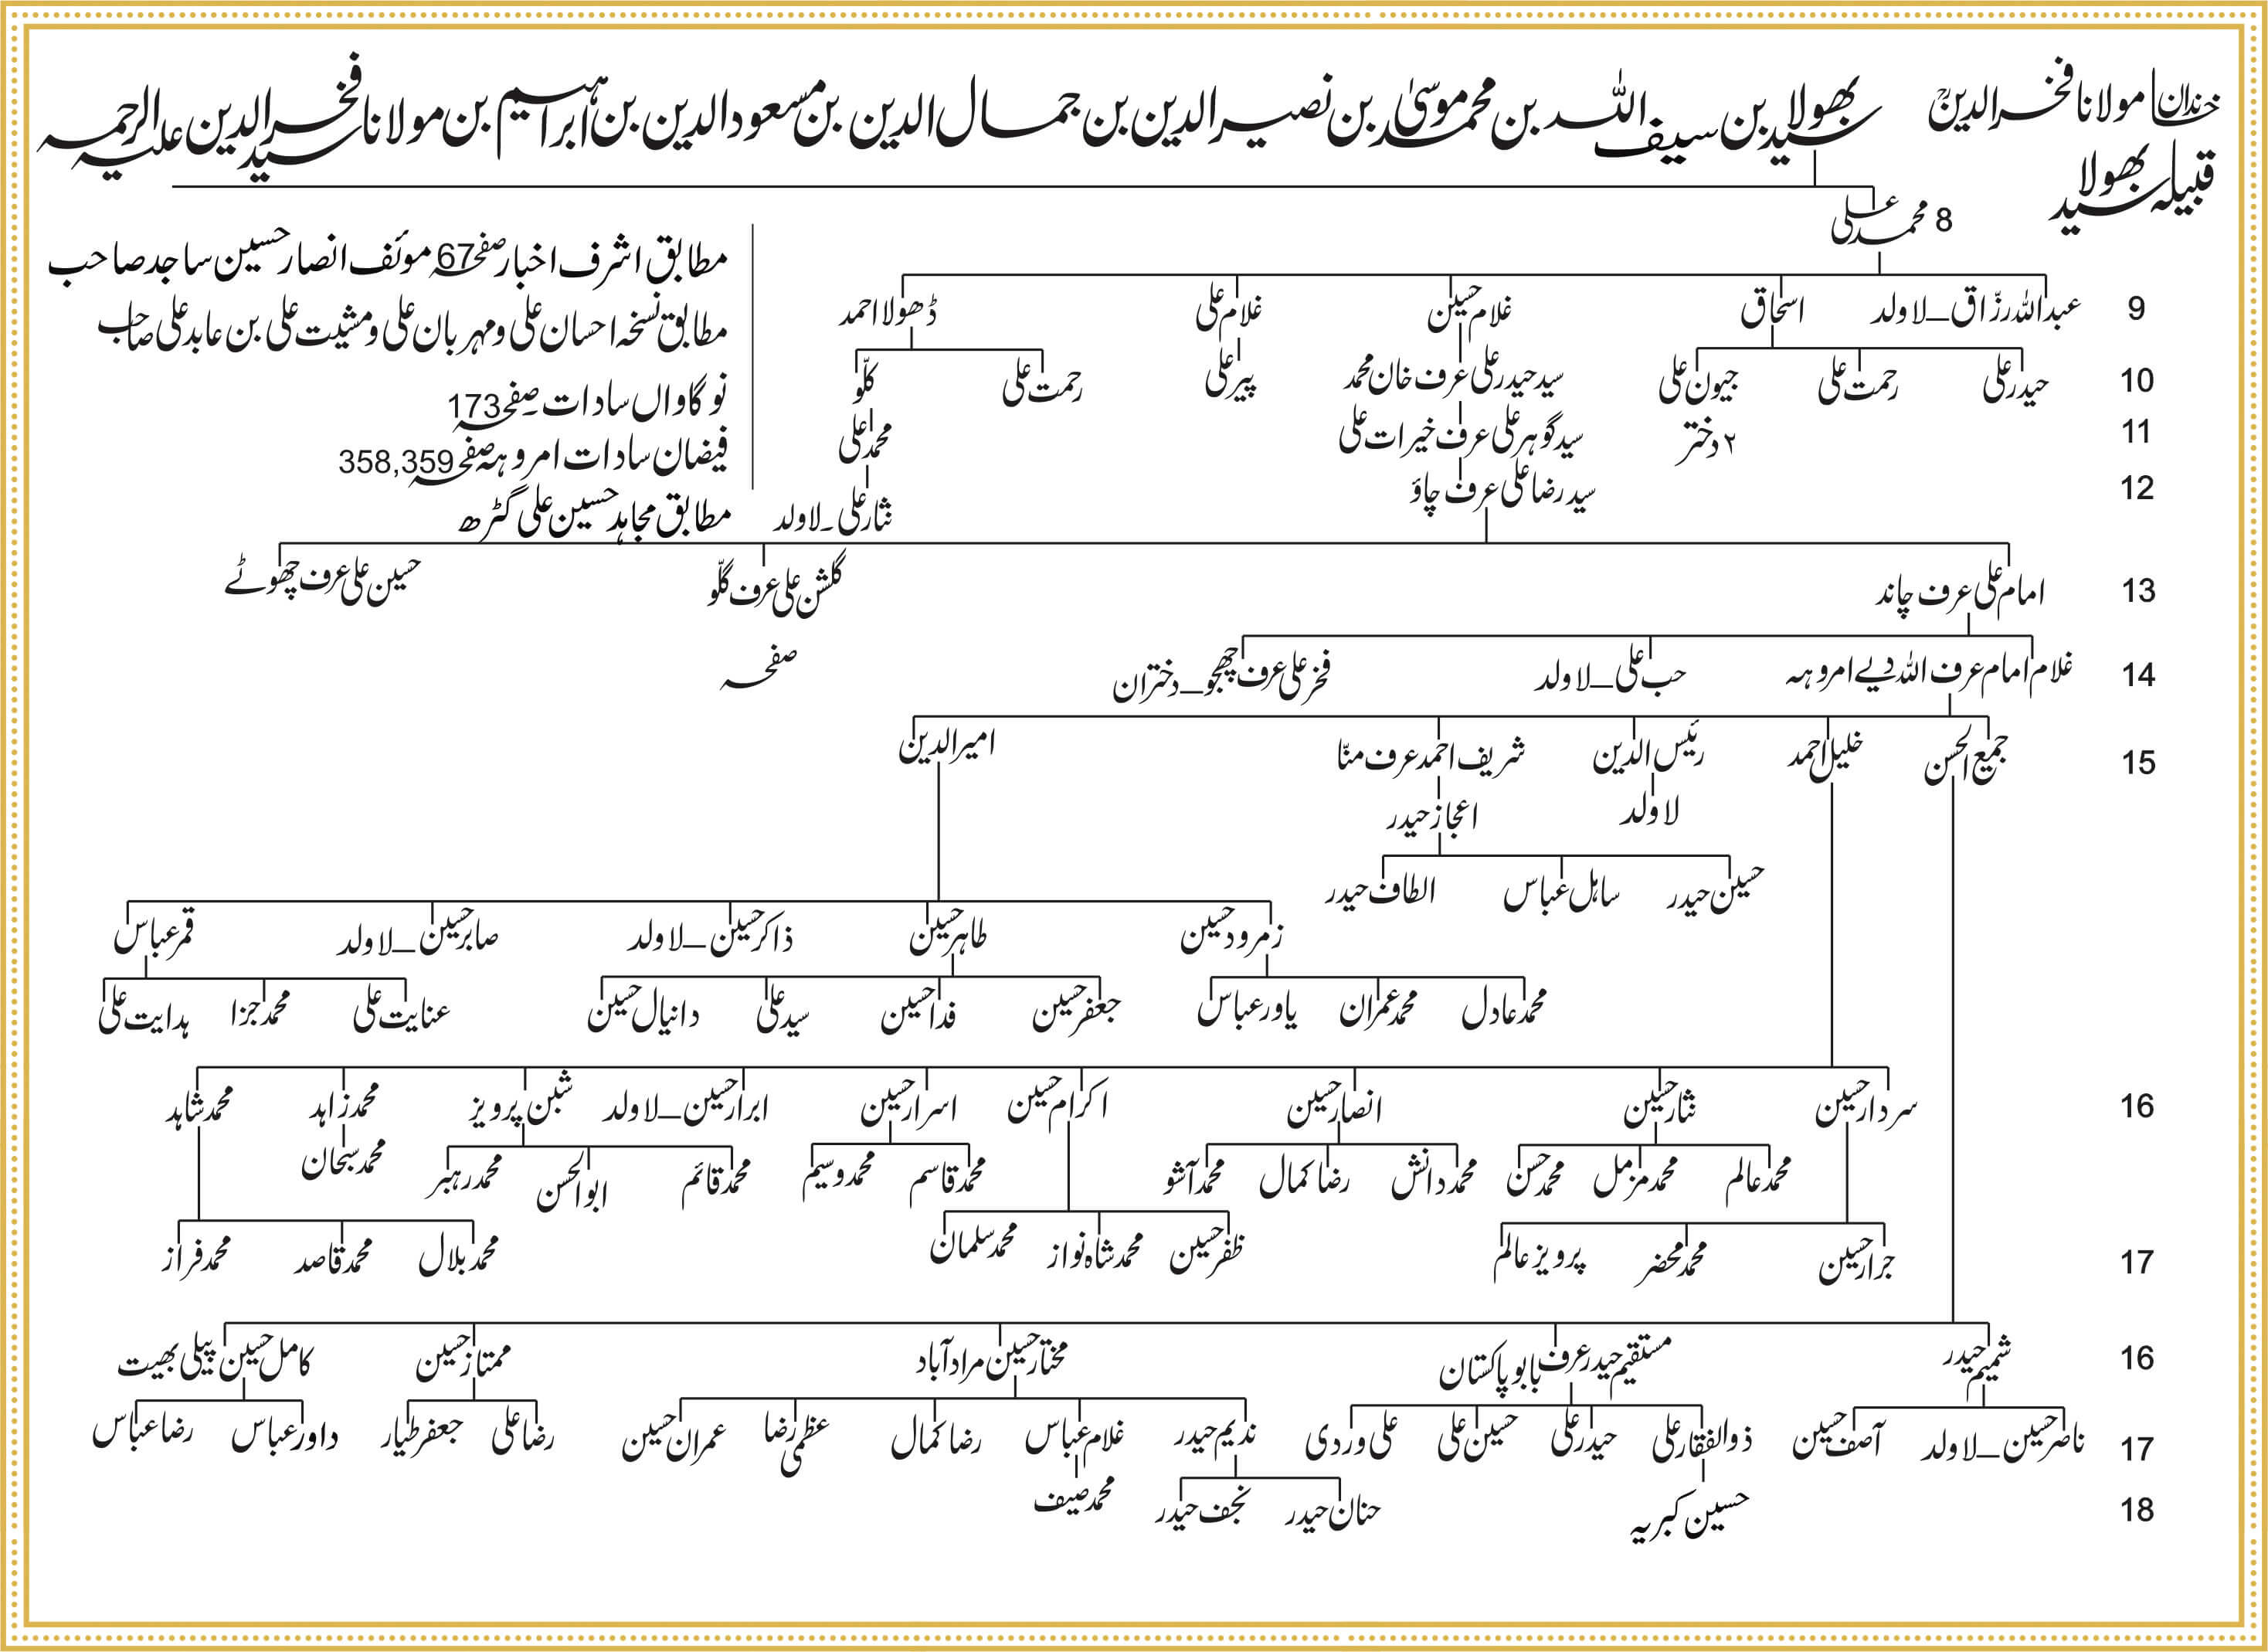 خاندان مولانا فخرالدینؒ
قبیلہ سید بھولا
سید بھولا بن سیف اللہ بن محمد موسیٰ بن نصیرالدین بن جمال الدین بن مسعودالدین بن ابراہیم بن مولانا سید فخرالدین علیہ الرحمہ
8 محمد علی
مطابق اشرف اخبار صفحہ 67 موئف انصار حسین ساجد صاحب
مطابق نسخہ احسان علی و مہربان علی و مشیت علی بن عابد علی صاحب
نوگاواں سادات۔ صفحہ 173
فیضان سادات امروہہ صفحہ 358,359
مطابق مجاہد حسین علی گڑھ
9 عبداللہ رزّاق_لاولد اسحاق غلام حسین غلام علی ڈھولا احمد
10 حیدر علی رحمت علی جیون علی سید حیدر علی عرف خان محمد پیر علی رحمت علی کلّو
11 ۲ دختر سید گوہر علی عرف خیرات علی محمد علی
12 سید رضا علی عرف چاؤ نثار علی۔لاولد
13 امام علی عرف چاند گلشن علی عرف گلّو حسین علی عرف چھوٹے
14 غلام امام عرف اللہ دیے امروہہ حب علی_لاولد فخر علی عرف چھجو_دختران صفحہ
15 جمیع الحسن خلیل احمد رئیس الدین شریف احمد عرف منّا امیرالدین
لاولد اعجاز حیدر
حسین حیدر ساہل عباس الطاف حیدر
زمرود حسین طاہر حسین ذاکر حسین_لاولد صابر حسین_لاولد قمر عباس
محمد عادل محمد عمران یاور عباس جعفر حسین فدا حسین سید علی دانیال حسین عنایت علی محمد جزا ہدایت علی
16 سردار حسین نثار حسین انصار حسین اکرام حسین اسرار حسین ابرار حسین_لاولد شبن پرویز محمد زاہد محمد شاہد
محمد عالم محمد مزمل محمد حسن محمد دانش رضا کمال محمد آشو محمد قاسم محمد وسیم محمد قائم ابوالحسن محمد رہبر محمد سبحان
17 جرار حسین محمد محضر پرویز عالم ظفر حسین محمد شاہ نواز محمد سلمان محمد بلال محمد قاصد محمد فراز
16 شمیم حیدر مستقیم حیدر عرف بابو پاکستان مختار حسین مرادآباد ممتاز حسین کامل حسین پیلی بھیت
17 ناصر حسین_لاولد آصف حسین ذوالفقار علی حیدر علی حسین علی علی وردی ندیم حیدر غلام عباس رضا کمال عظمی رضا عمران حسین رضا علی جعفر طیار داور عباس رضا عباس
18 حسین کبریہ حنان حیدر نجف حیدر محمد صیف